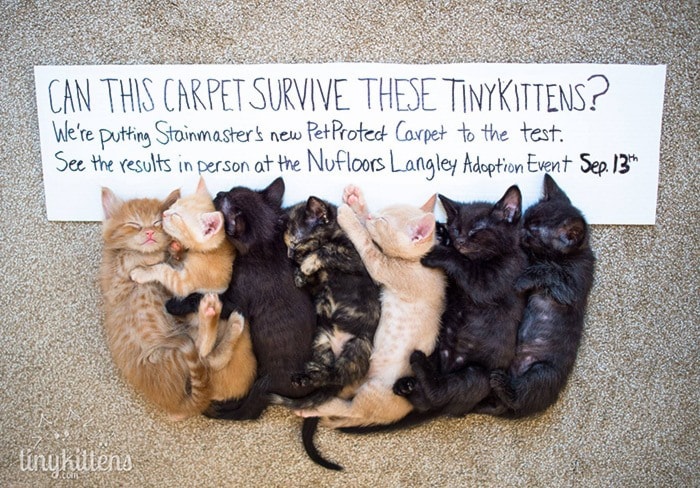 CAN THIS CARPET SURVIVE THESE TINYKITTENS?
We're putting Stainmaster's new PetProtect Carpet to the test.
See the results in person at the Nufloors Langley Adoption Event Sep. 13th
tinykittens
.com